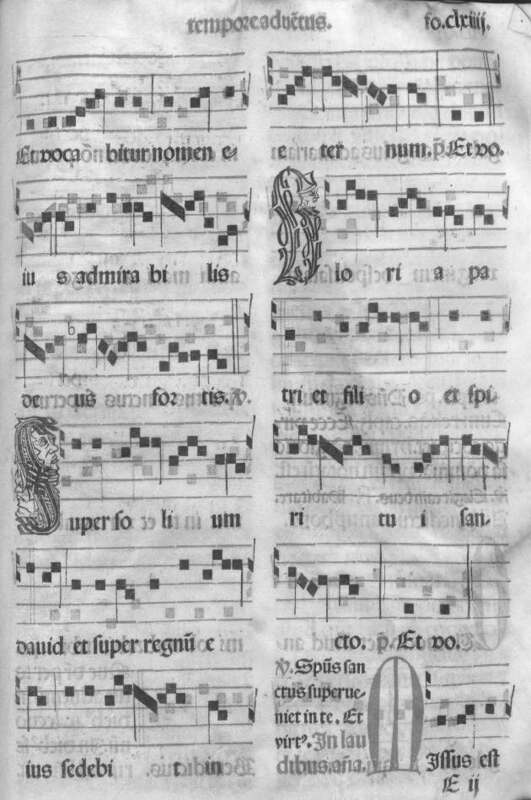 tempore aduētus.
fo.clxiiij.
Et vocaōn bitur nomen e-
iu s admira bi lis
de us for tis. ℣.
Super so li um
dauid et super regnū e
ius sedebi t in
e ter num. p̄. Et vo.
Glo ri a pa
tri et fili o et spi
ri tu i san-
cto. p̄. Et vo.
℣. Spūs san
ctus superue-
niet in te. Et
virt⁹. In lau
dibus. aña.
Missus est
E ij